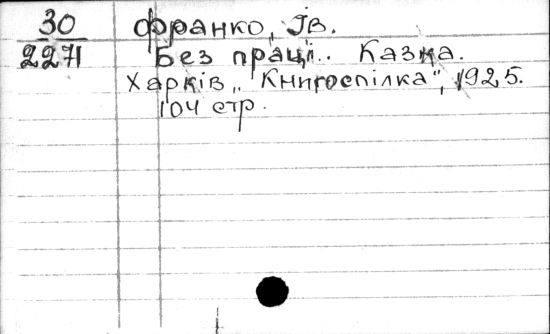 30
2271
Франко, Ів.
Без праці.. Казка.
Харків, "Книгоспілка", 1925.
104 стр.